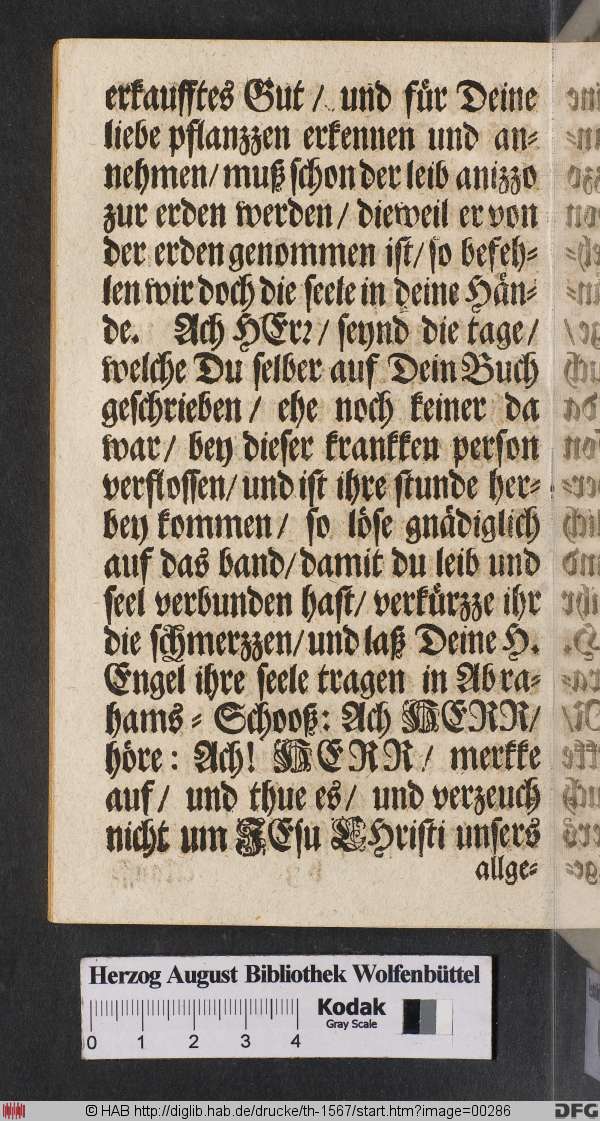 erkaufftes Gut / und für Deine
liebe pflanzzen erkennen und an-
nehmen/ muß schon der leib anizzo
zur erden werden / dieweil er von
der erden genommen ist/ so befeh-
len wir doch die seele in deine Hän-
de. Ach HErꝛ/ seynd die tage/
welche Du selber auf Dein Buch
geschrieben / ehe noch keiner da
war/ bey dieser krankken person
verflossen/ und ist ihre stunde her-
bey kommen/ so löse gnädiglich
auf das band/ damit du leib und
seel verbunden hast/ verkürzze ihr
die schmerzzen/ und laß Deine H.
Engel ihre seele tragen in Abra-
hams-Schooß: Ach HERR/
höre: Ach! HERR / merkke
auf/ und thue es/ und verzeuch
nicht um JEsu CHristi unsers
allge-
Herzog August Bibliothek Wolfenbüttel
Kodak
Gray Scale
0 1 2 3 4
© HAB http://diglib.hab.de/drucke/th-1567/start.htm?image=00286
DFG